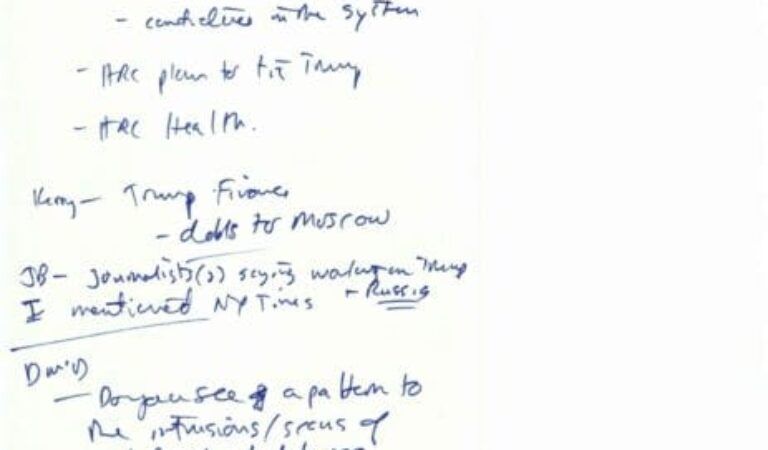 - candidates in the system
- HRC plan to tie Trump
- HRC Health.
Kerry - Trump Finance
- debts to Moscow
JB - Journalists(s) saying working on Trump
I mentioned NY Times + Russia
David
- Do you see a pattern to
the intrusions/ of